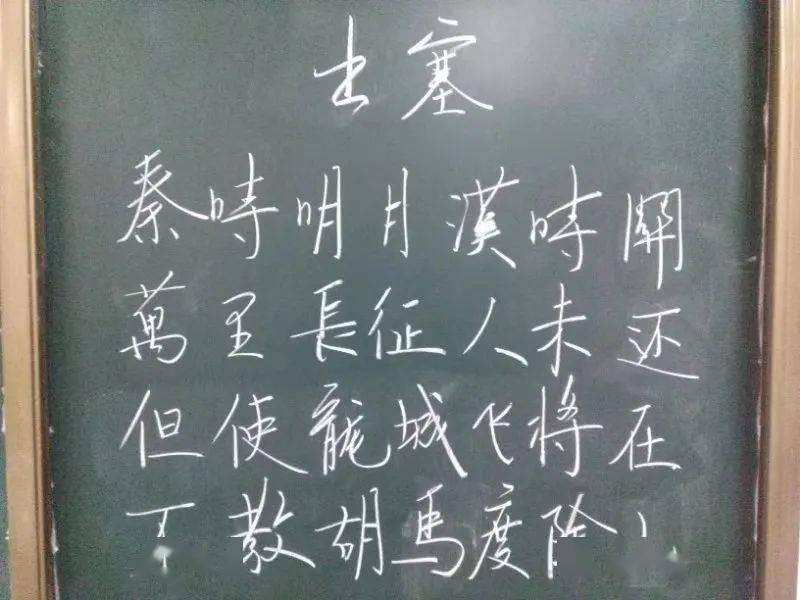 出塞
秦時明月漢時關
萬里長征人未还
但使龍城飞将在
不教胡馬度